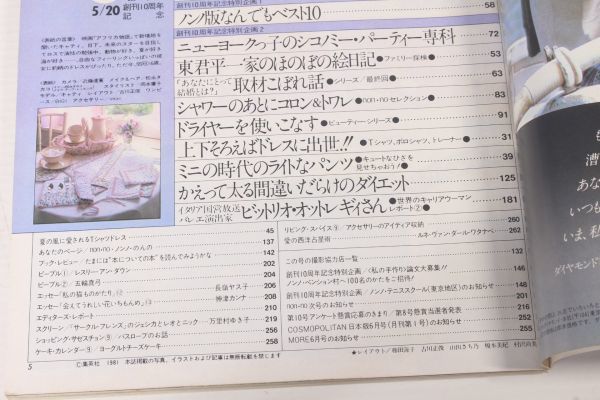 5/20 創刊10周年
記念
創刊10周年記念特別企画1
ノン版なんでもベスト10 58
創刊10周年記念特別企画2
ニューヨークっ子のシコミー・パーティー専科 72
東君平一家のほのぼの絵日記●ファミリー探検● 53
「あなたにとって結婚とは?」取材こぼれ話●シリーズ/最終回● 63
シャワーのあとにコロン&トワレ●non・noセレクション● 83
ドライヤーを使いこなす●ビューティーシリーズ● 91
上下そろえばドレスに出世!!●Tシャツ、ポロシャツ、トレーナー● 31
ミニの時代のライトなパンツ●キュートなひざを見せちゃおう!● 39
かえって太る間違いだらけのダイエット 125
イタリア国営放送バレエ演出家ビットリオ・オットレギィさん●世界のキャリアウーマンレポート②● 181
夏の風に愛されるTシャツドレス 45
あなたのページ/non・no・ノンノ・のんの 137
ブック・レビュー/たまには“本についての本”を読んでみようかな 142
ピープル①/レスリー・アン・ダウン 204
ピープル②/五輪真弓 202
エッセー「私の猫ものがたり」 長島ヤス子 206
エッセー「会えてうれしい花いちもんめ」 神津カンナ 208
エディターズ・レポート 210
スクリーン/「サークル・フレンズ」のジェシカとレオとニック 万里村ゆき子 219
ショッピング・サゼスチョン⑨/バスローブのお話 256
ケーキ・カレンダー⑨/ヨーグルトチーズケーキ 258
リビング・スパイス⑨/アクセサリーのアイディア収納 260
愛の西洋占星術 ルネ・ヴァン・ダール・ワタナベ 262
この号の撮影協力店一覧 132
創刊10周年記念特別企画/〈私の手作り〉論文大募集!!
ノンノ・ペンション村へ100名のかたをご招待! 146
創刊10周年記念特別企画/ノンノ・テニススクール(東京地区)のお知らせ 148
non・no次号のお知らせ 201
第10号アンケート懸賞応募のきまり/第8号懸賞当選者発表 216
COSMOPOLITAN日本版6月号(月刊第1号)のお知らせ 252
MORE6月号のお知らせ 255
5 ©集英社 1981 本誌掲載の写真、イラストおよび記事は無断転載を禁じます
も
漕
あな
いつも
いま、私
ダイヤモンド